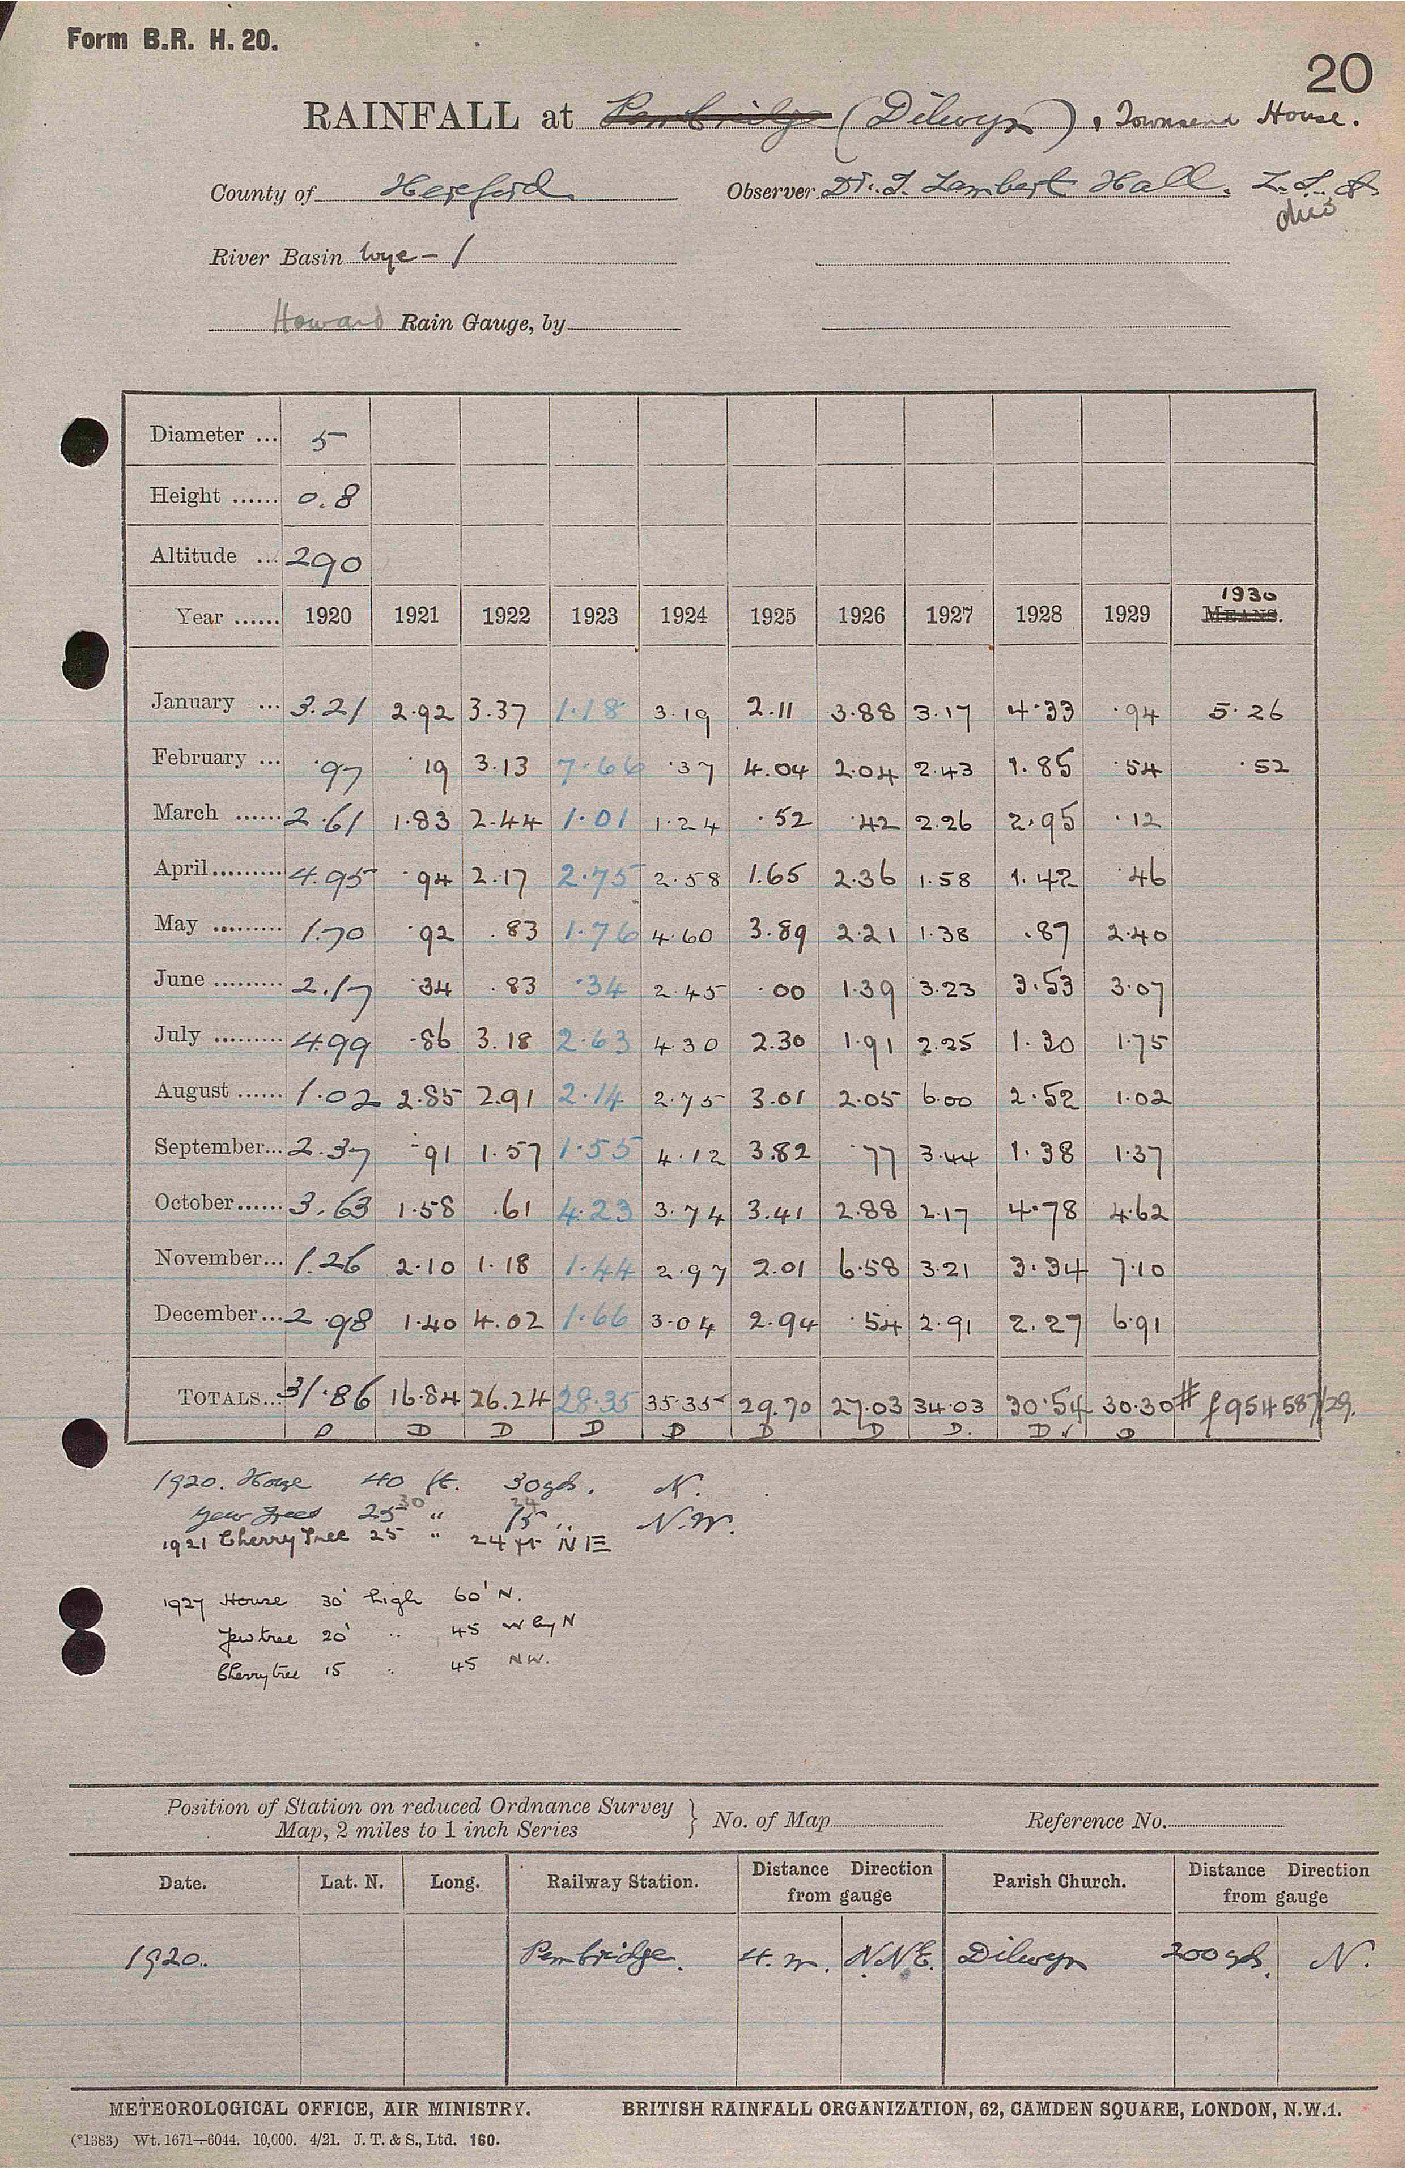 Form B.R. H. 20.
20
RAINFALL at Pembridge (Dilwyn), Townsend House.
County of Hereford Observer Dr. T. Lambert Hall.
River Basin Wye - 1
Howard Rain Gauge, by
Diameter ... 5
Height ...... 0.8
Altitude ... 290
Year ...... 1920 1921 1922 1923 1924 1925 1926 1927 1928 1929 1930 MEANS.
January ... 3.21 2.92 3.37 1.18 3.19 2.11 3.88 3.17 4.33 .94 5.26
February ... .97 .19 3.13 7.66 .37 4.04 2.04 2.43 1.85 .54 .52
March ...... 2.61 1.83 2.44 1.01 1.24 .52 .42 2.26 2.95 .12
April ......... 4.95 .94 2.17 2.75 2.58 1.65 2.36 1.58 1.42 .46
May ......... 1.70 .92 .83 1.76 4.60 3.89 2.21 1.38 .87 2.40
June ......... 2.17 .34 .83 .34 2.45 .00 1.39 3.23 3.53 3.07
July ......... 4.99 .86 3.18 2.63 4.30 2.30 1.91 2.25 1.30 1.75
August ...... 1.02 2.85 2.91 2.14 2.75 3.01 2.05 6.00 2.52 1.02
September... 2.37 .91 1.57 1.55 4.12 3.82 .77 3.44 1.38 1.37
October...... 3.63 1.58 .61 4.23 3.74 3.41 2.88 2.17 4.78 4.62
November... 1.26 2.10 1.18 1.44 2.97 2.01 6.58 3.21 3.34 7.10
December... 2.98 1.40 4.02 1.66 3.04 2.94 .54 2.91 2.27 6.91
TOTALS... 31.86 16.84 26.24 28.35 35.35 29.70 27.03 34.03 30.54 30.30 # f954587/29.
D D D D D D D D. D √ D
1920. House 40 ft. 30 yds. N.
Yew Trees 25 30 " 15 24 " N.W.
1921 Cherry Tree 25 " 24 ft NE
1927 House 30' high 60' N.
Yew tree 20' " 45 W by N
Cherry tree 15 " 45 NW.
Position of Station on reduced Ordnance Survey
Map, 2 miles to 1 inch Series } No. of Map Reference No.
Date. Lat. N. Long. Railway Station. Distance Direction from gauge Parish Church. Distance Direction from gauge
1920. Pembridge. 4. m. N.N.E. Dilwyn 200 yds. N.
METEOROLOGICAL OFFICE, AIR MINISTRY. BRITISH RAINFALL ORGANIZATION, 62, CAMDEN SQUARE, LONDON, N.W.1.
(*1383) Wt. 1671—6044. 10,000. 4/21. J. T. & S., Ltd. 160.